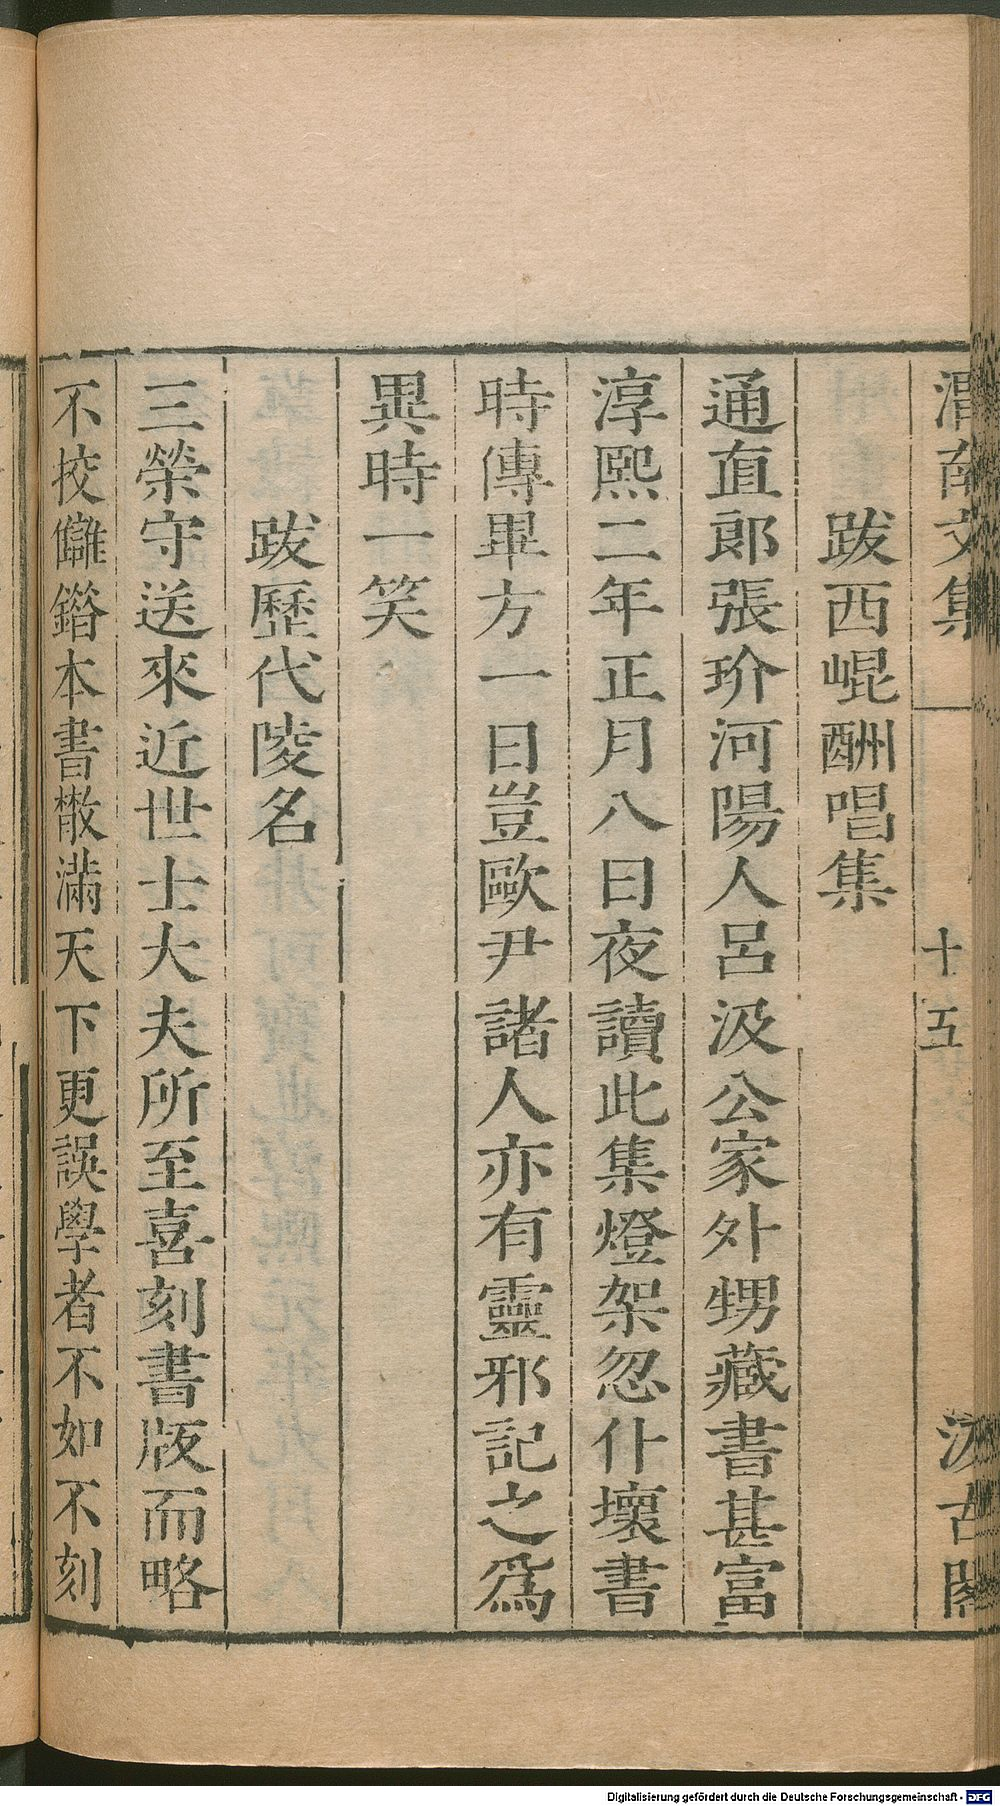 渭南文集 十五 汲古閣
跋西崐酬唱集
通直郎張玠河陽人呂汲公家外甥藏書甚富
淳熙二年正月八日夜讀此集燈架忽仆壞書
時傳畢方一日豈歐尹諸人亦有靈邪記之爲
異時一笑
跋歷代陵名
三榮守送來近世士大夫所至喜刻書版而略
不挍讎錯本書散滿天下更誤學者不如不刻
Digitalisierung gefördert durch die Deutsche Forschungsgemeinschaft - DFG